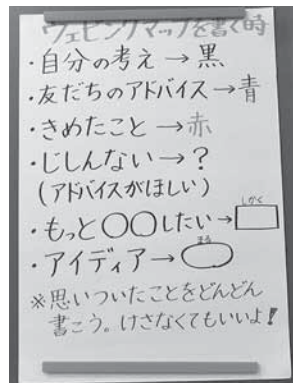 ウェビングマップを書く時
・自分の考え→黒
・友だちのアドバイス→青
・きめたこと→赤
・じしんない→?
(アドバイスがほしい)
・もっと〇〇したい→しかく
・アイディア→まる
※思いついたことをどんどん
書こう。けさなくてもいいよ!